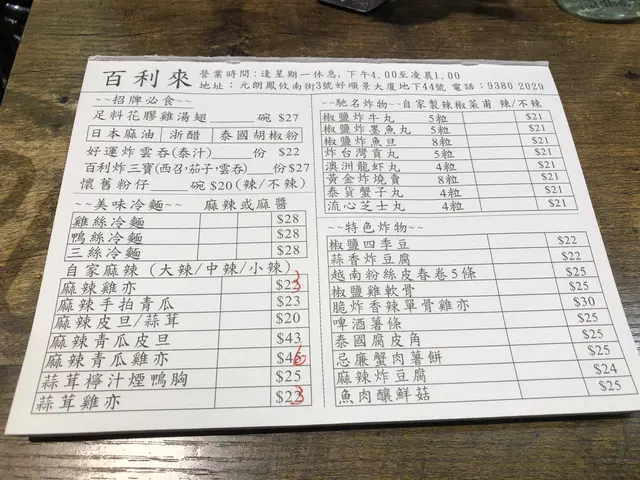 百利來
營業時間:逢星期一休息, 下午4.00至凌晨1.00
地址: 元朗鳳攸南街3號好順景大廈地下44號 電話:9380 2029
~~招牌必食~~
足料花膠雞湯翅 ____ 碗 $27
日本麻油 浙醋 泰國胡椒粉
好運炸雲吞(泰汁) 份 $22
百利炸三寶(西召,茄子,雲吞) 份$27
懷舊粉仔 ____ 碗 $20(辣/不辣)
~~美味冷麵~~ 麻辣或麻醬
雞絲冷麵 $28
鴨絲冷麵 $28
三絲冷麵 $28
自家麻辣 (大辣/中辣/小辣)
麻辣雞亦 $23
麻辣手拍青瓜 $23
麻辣皮旦/蒜茸 $20
麻辣青瓜皮旦 $43
麻辣青瓜雞亦 $46
蒜茸檸汁煙鴨胸 $25
蒜茸雞亦 $23
~~馳名炸物~~自家製辣椒菜甫 辣/不辣
椒鹽炸牛丸 5粒 $21
椒鹽炸墨魚丸 5粒 $21
椒鹽炸魚旦 8粒 $21
炸台灣貢丸 5粒 $21
澳洲龍蝦丸 4粒 $21
黃金炸燒賣 8粒 $21
泰貨蟹子丸 4粒 $21
流心芝士丸 4粒 $21
~~特色炸物~~
椒鹽四季豆 $22
蒜香炸豆腐 $22
越南粉絲皮春卷5條 $25
椒鹽雞軟骨 $25
脆炸香辣單骨雞亦 $30
啤酒薯條 $25
泰國腐皮角 $25
忌廉蟹肉薯餅 $25
麻辣炸豆腐 $24
魚肉釀鮮菇 $25